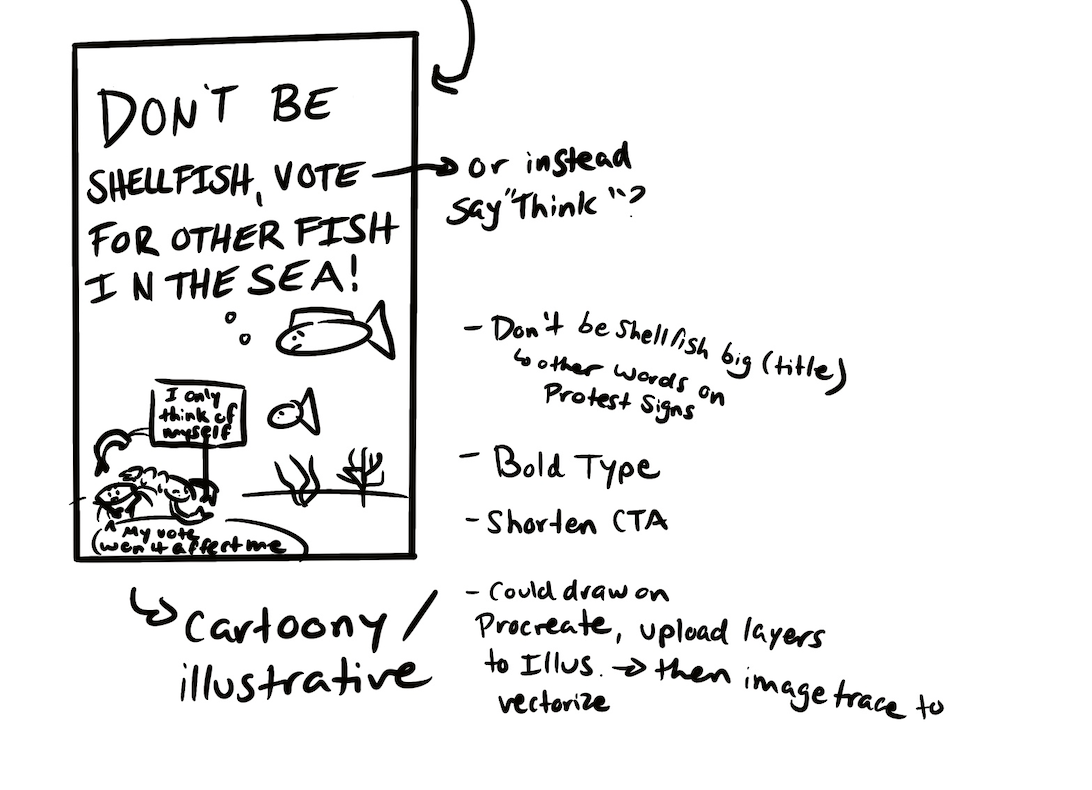 DON'T BE
SHELLFISH, VOTE
FOR OTHER FISH
IN THE SEA!
I only
think of
myself
My vote
won't affect me
or instead
say "Think"?
- Don't be shellfish big (title)
↳ other words on
Protest Signs
- Bold Type
- Shorten CTA
- Could draw on
Procreate, upload layers
to Illus. → then image trace to
vectorize
↳ cartoony /
illustrative